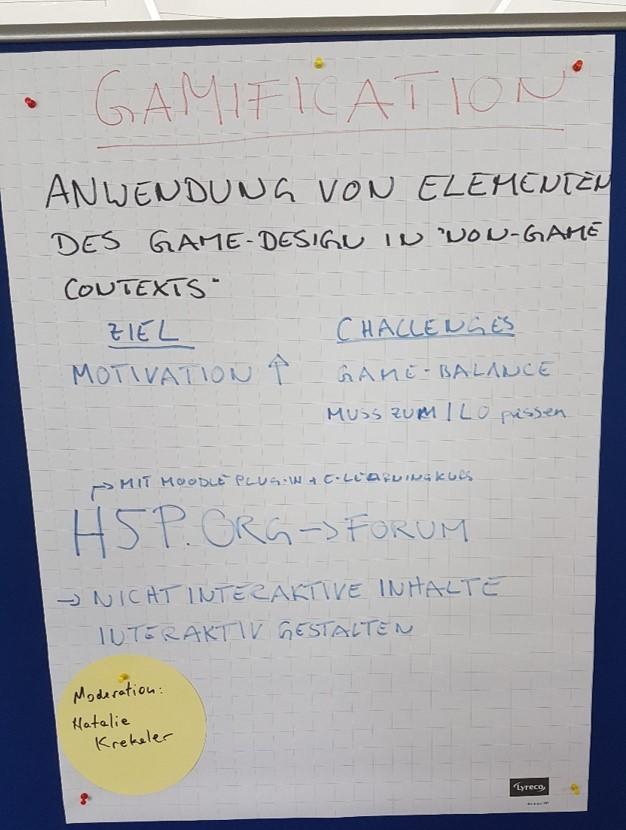 GAMIFICATION
ANWENDUNG VON ELEMENTEN
DES GAME-DESIGN IN "NON-GAME
CONTEXTS"
ZIEL
MOTIVATION ↑
CHALLENGES
GAME-BALANCE
MUSS ZUM ILO passen
→ MIT MOODLE PLUG-IN + E-LEARNINGKURS
H5P.ORG → FORUM
→ NICHT INTERAKTIVE INHALTE
INTERAKTIV GESTALTEN
Moderation:
Natalie
Krekeler
Lyreco